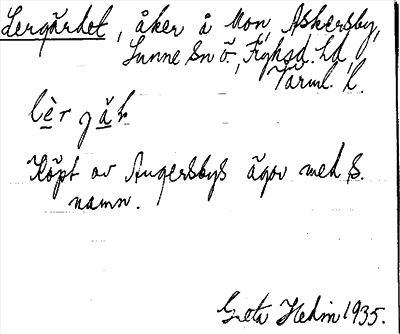 Lergärdet, åker å Mon, Askersby,
Sunne sn ö., Fryksd. hd,
Värml. l.
lèr gàḷ
Köpt av Angersbys ägor med s.
namn.
Greta Hedin 1935.